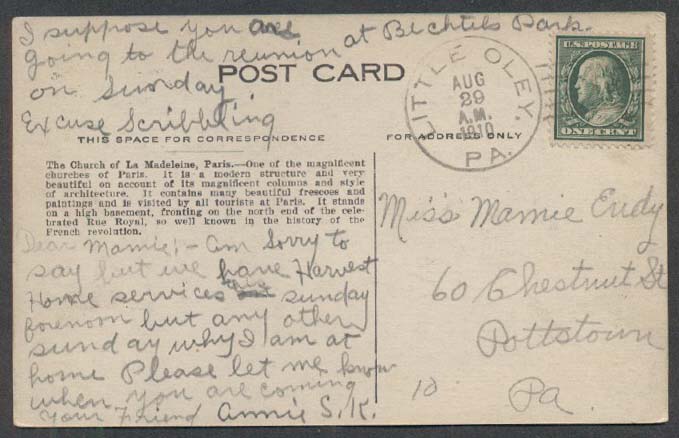 I suppose you are
going to the reunion at Bechtels Park.
on Sunday
Excuse Scribbling
POST CARD
THIS SPACE FOR CORRESPONDENCE
FOR ADDRESS ONLY
LITTLE OLEY.
AUG
29
A.M.
1910
PA.
U.S. POSTAGE
ONE CENT
The Church of La Madeleine, Paris.—One of the magnificent
churches of Paris. It is a modern structure and very
beautiful on account of its magnificent columns and style
of architecture. It contains many beautiful frescoes and
paintings and is visited by all tourists at Paris. It stands
on a high basement, fronting on the north end of the cele-
brated Rue Royal, so well known in the history of the
French revolution.
Dear Mamie:- am Sorry to
say but we have Harvest
Home services this sunday
forenom but any other
sunday why I am at
home Please let me know
when you are coming
Your Friend Annie S.K.
Miss Mamie Eudy
60 Chestnut St
Pottstown
Pa.
10